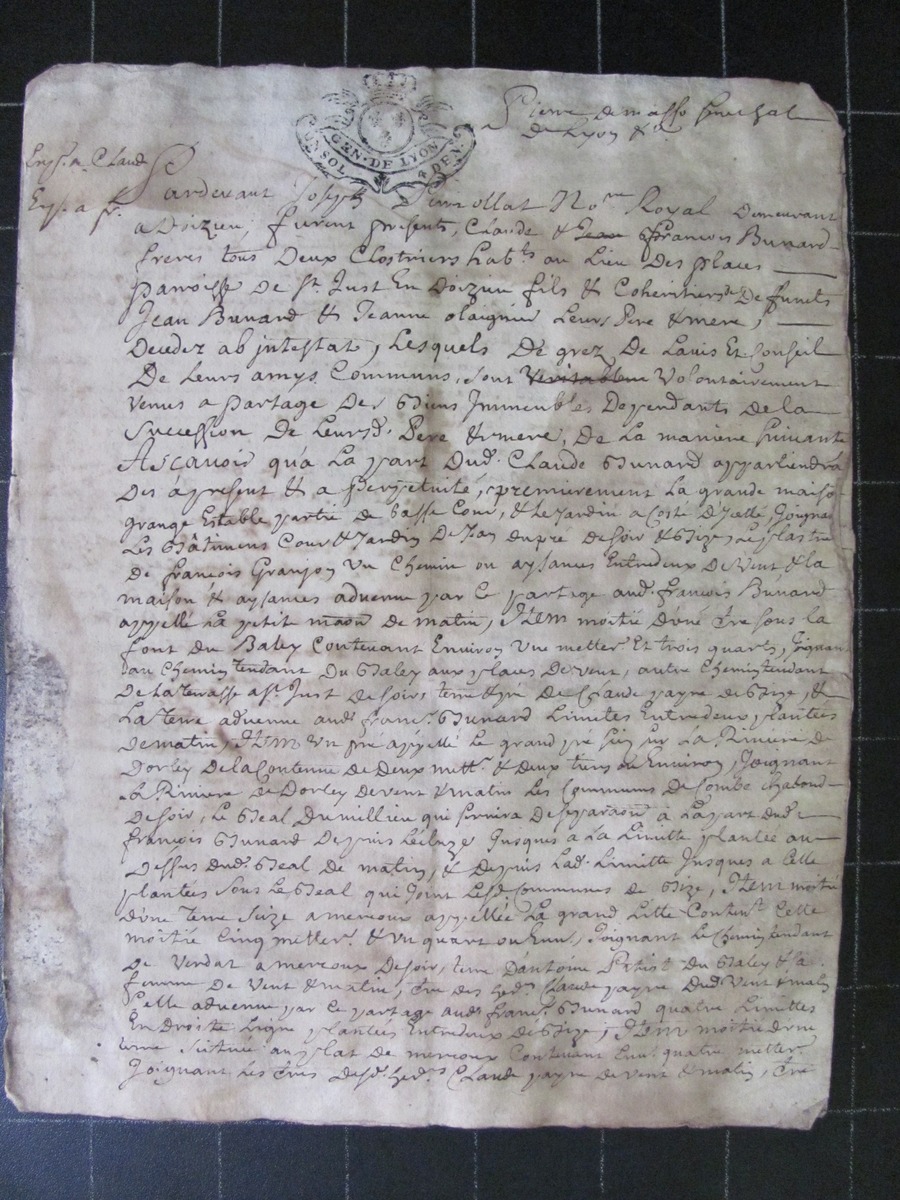 Pierre demasso senechal
de Lyon &c
GEN. DE LYON
UN SOL
4 DEN.
Exp. a Claud
Exp. a fr.
Pardevant Joseph Perrollat No.re Royal Demeurant
a Doizieu, furent presents, Claude & Jean François Bunard
freres tous Deux Clostriers hab.ts au Lieu Des places
parroisse De St. Just En doizieu fils & Coheritiers De functs
Jean Bunard & Jeanne olaignier Leurs Pere & mere,
Decedez ab jntestat, Lesquels De grez De Lavis Et Conseil
De Leurs amys Communs, sont Veritableme Volontairement
venus a partage Des Biens Jmmeubles Dependants de la
Succession De Leursd. Pere & mere, De La maniere suivante
Asçavoir qu'a La part Dud. Claude Bunard appartiendra
Des apresent & a perpetuité, premierement La grande maiso
grange Estable partie de basse Cour, & Le Jardin a Costé D'jcelle, Joignan
Les Bâtimens Cour & Jardin De Jean dupré de soir & Bize, Le plastre
De François Granjon Vn Chemin ou aysances Entredeux De Vent & la
maison & aysances advenue par Ce partage aud. François Bunard
appellé La petit maon de matin, Jtem moitié d'une tre sous la
font du Baley Contenant Environ Vne metter.e Et trois quarts, Joignan
au Chemin tendant Du Baley aux places De vent, autre Chemin tendant
De La terasse a St. Just de soir, terre & pré de Claude payre de bize, &
La Terre advenue aud. franc. Bunard Limites Entredeux plantées
De matin, Jtem Vn pré appellé Le grand pré sis sur La Riviere de
Dorley De la Contenue de Deux mett.s & deux tiers ou Environ, Joignant
La Riviere de Dorley de vent & matin Les Communs de Combe Chabond
De soir, Le Beal Du millieu qui servira de separaon a La part dud.
François Bunard Depuis L'écluze Jusques a La Limitte plantée au
Dessus dud. Beal de matin, & depuis Lad. Limitte Jusques a Celle
plantées sous Le Beal qui Joint Lesd. Communes de Bize, Jtem moitié
D'une Terre size a mercoux appellée La grand Litte Conten.t Cette
moitié Cinq metter.s & Vn quart ou Env., Joignant Le Chemin tendant
De Verdat a mercoux De soir, terre D'antoine Du Baley & sa
femme De Vent & matin, tre des her.s Claude payre Dud. Vent & matin
Celle advenue par Ce partage aud. franc. Bunard quatre Limittes
En droite Ligne plantées Entredeux de Bize, Jtem moitié d'une
terre Scituée au plat de mercoux Contenant Env. quatre metter.
Joignant Les tres desd. her.s Claude payre de vent & matin, tre